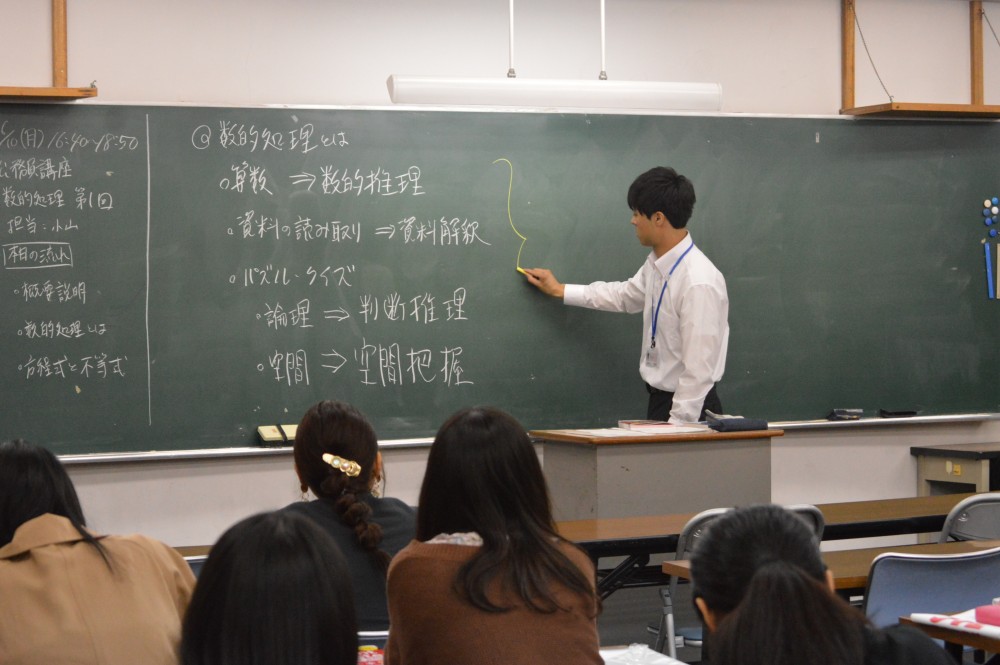 /10(月) 16:40~18:50
公務員講座
数的処理 第1回
担当:小山
本日の流れ
・概要説明
・数的処理とは
・方程式と不等式
◎数的処理とは
○算数 ⇒数的推理
○資料の読み取り ⇒資料解釈
○パズル・クイズ
・論理 ⇒ 判断推理
・空間 ⇒ 空間把握